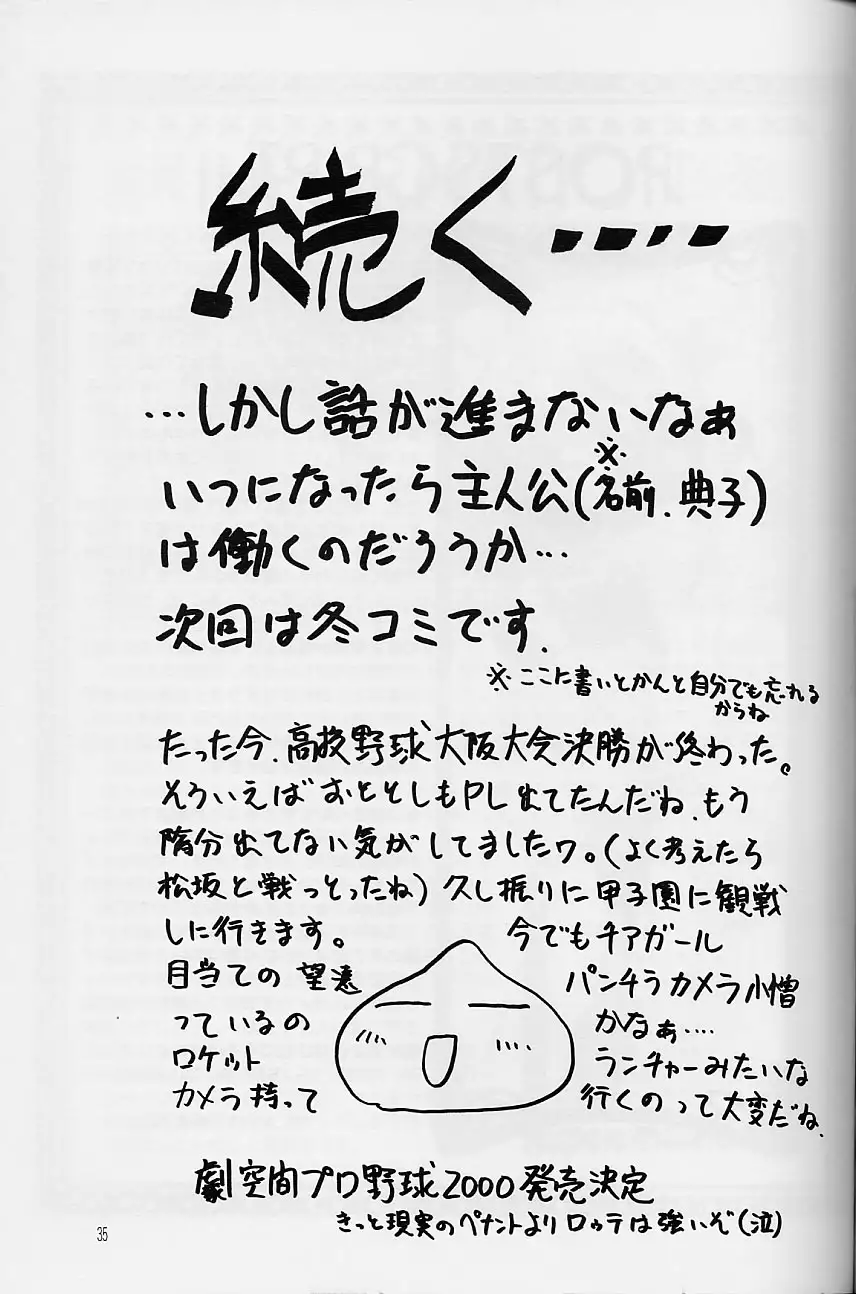 続く‥‥
…しかし話が進まないなぁ
いつになったら主人公(※名前.典子)
は働くのだろうか…
次回は冬コミです.
※ここに書いとかんと自分でも忘れる
からね
たった今、高校野球大阪大会決勝が終わった。
そういえばおととしもPL出てたんだね、もう
随分出てない気がしてましたワ。(よく考えたら
松坂と戦っとったね)久し振りに甲子園に観戦
しに行きます。 今でもチアガール
目当ての望遠 パンチラカメラ小憎
っているの かなぁ‥‥
ロケット ランチャーみたいな
カメラ持って 行くのって大変だね.
劇空間プロ野球2000発売決定
きっと現実のペナントよりロッテは強いぞ(泣)
35